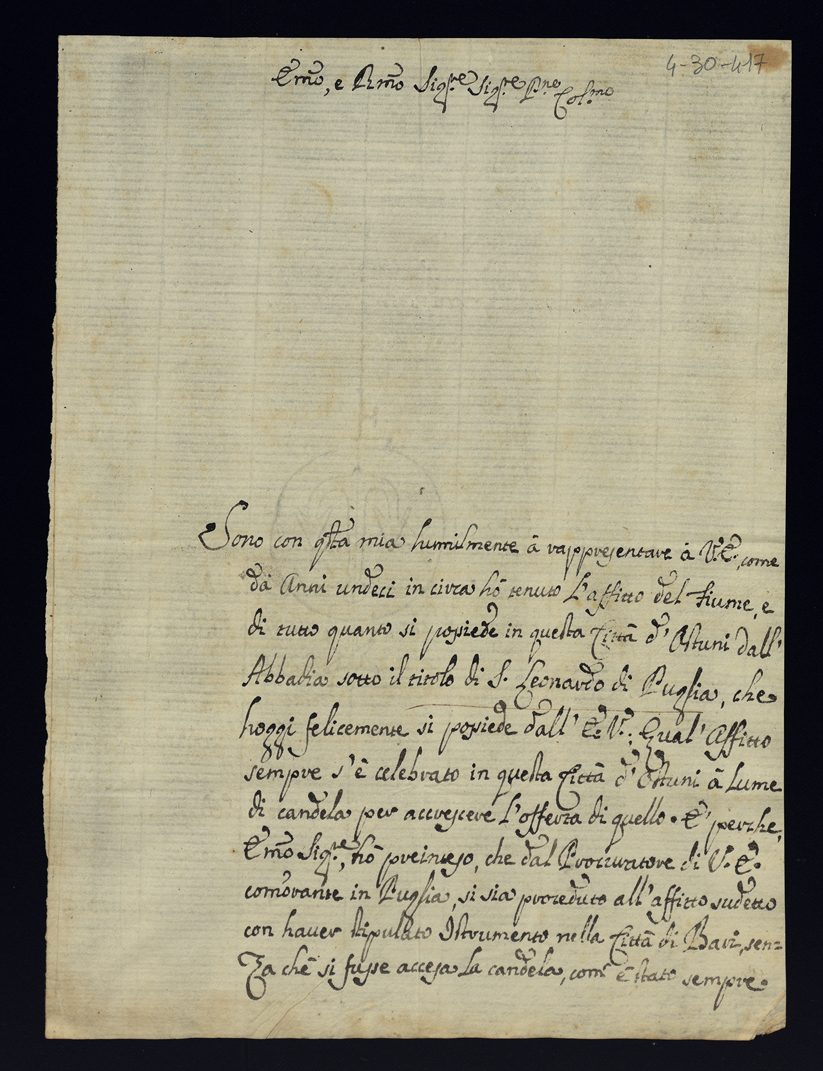 4-30-417
Em̃o, e Rm̃o Sig.re Sig.re P.ne Col.mo
Sono con q̃sta mia humilmente à rappresentare à V.E., come
dà Anni undeci in circa hò tenuto l'affitto del Fiume, e
di tutto quanto si possiede in questa Città d'Ostuni dall'
Abbadia sotto il titolo di S. Leonardo di Puglia, che
hoggi felicemente si possiede dall'E.V.; Qual'Affitto
sempre s'è celebrato in questa Città d'Ostuni à Lume
di candela per accrescere l'offerta di quello. E' perche,
Em̃o Sig.re, hò preinteso, che dal Procuratore di V.E.
com̃orante in Puglia, si sia proceduto all'affitto sudetto
con haver stipulato Istrumento nella Città di Bari, sen=
za che si fusse accesa la candela, com' è stato sempre